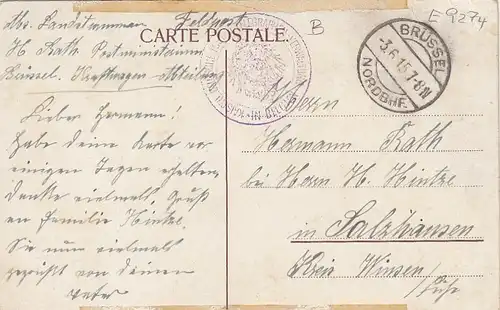 Abs. Landsturmmann Feldpost
H Kath Postanstamm
Brüssel. Kraftwagen Abteilung
CARTE POSTALE.
B
E 9274
BRÜSSEL
-3.6.15.7-8N
NORDBHF.
Lieber Hermann!
Habe deine Karte vor
einigen Tagen erhalten
danke vielmals, Gruß
an Familie Hintze.
Sei nun vielmals
gegrüßt von deinem
Vater
Herrn
Hermann Kath
bei Herrn H. Hintze
in Salzhausen
Kreis Winsen